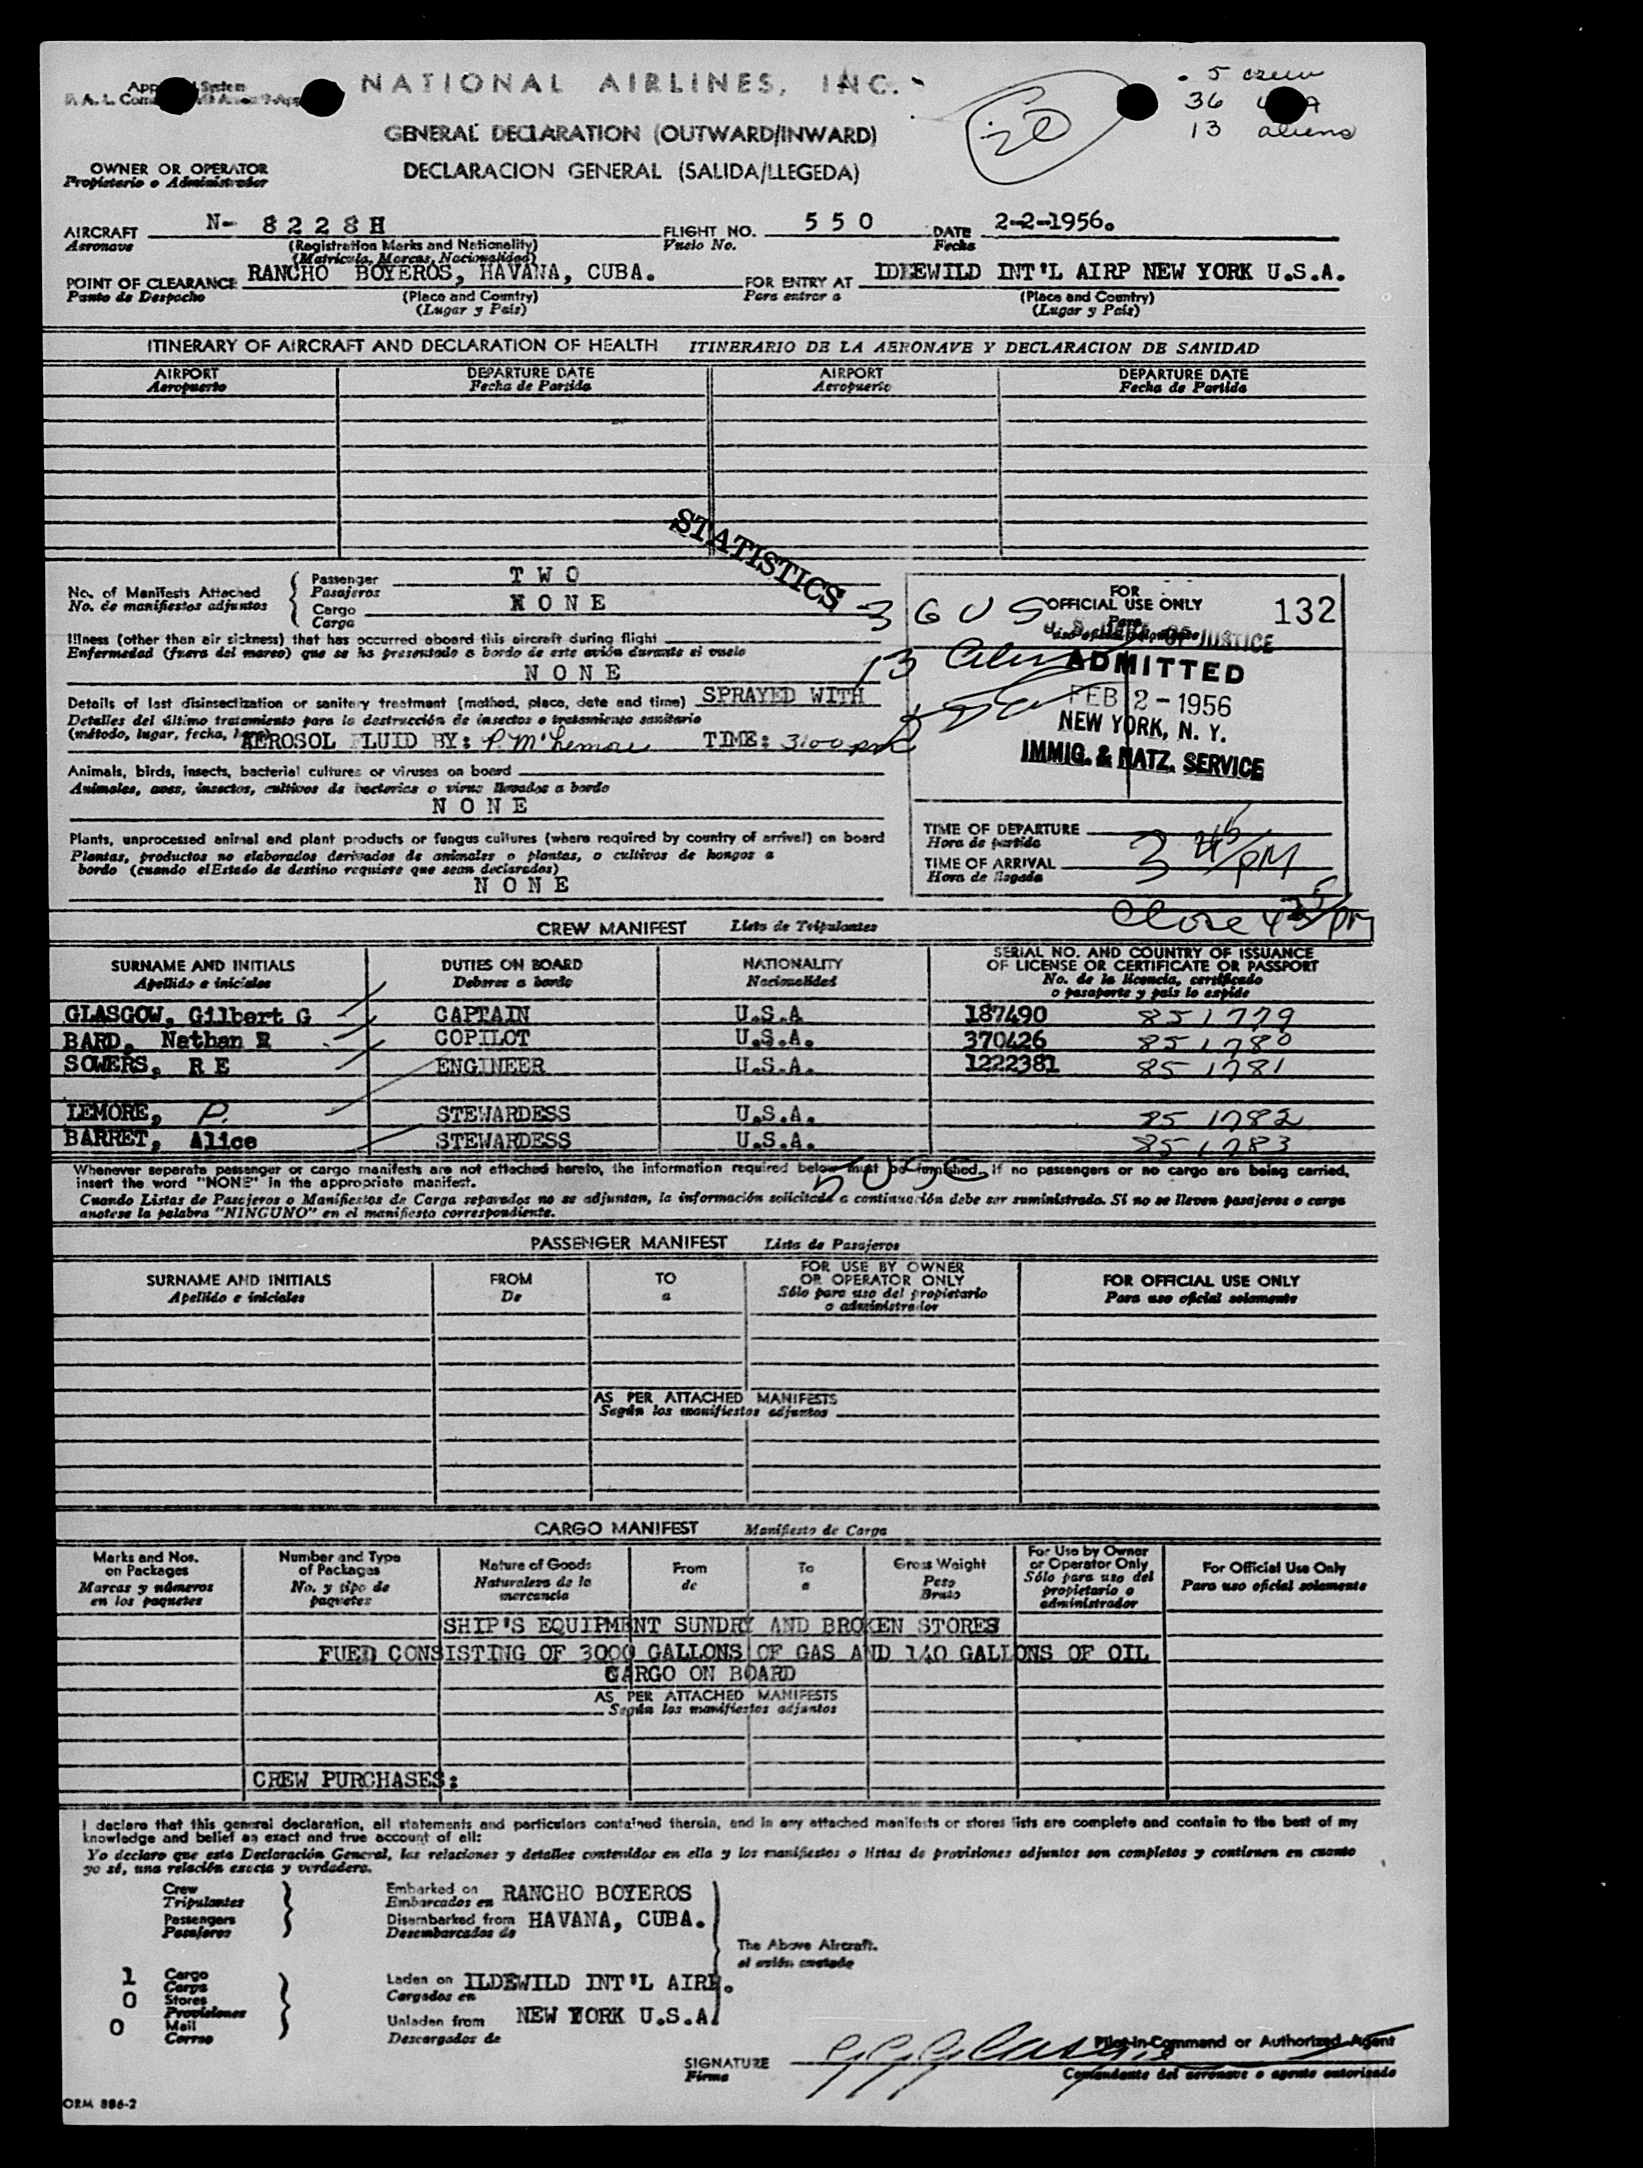 NATIONAL AIRLINES, INC.
5 crew
36
13 aliens
GENERAL DECLARATION (OUTWARD/INWARD)
DECLARACION GENERAL (SALIDA/LLEGEDA)
OWNER OR OPERATOR
Propietario o Administrador
AIRCRAFT N- 8228H FLIGHT NO. 550 DATE 2-2-1956.
Aeronave (Registration Marks and Nationality) Vuelo No. Fecha
(Matricula, Marcas, Nacionalidad)
POINT OF CLEARANCE RANCHO BOYEROS, HAVANA, CUBA. FOR ENTRY AT IDLEWILD INT'L AIRP NEW YORK U.S.A.
Punto de Despacho (Place and Country) Para entrar a (Place and Country)
(Lugar y País) (Lugar y País)
ITINERARY OF AIRCRAFT AND DECLARATION OF HEALTH ITINERARIO DE LA AERONAVE Y DECLARACION DE SANIDAD
AIRPORT DEPARTURE DATE AIRPORT DEPARTURE DATE
Aeropuerto Fecha de Partida Aeropuerto Fecha de Partida
STATISTICS
No. of Manifests Attached Passenger TWO
No. de manifiestos adjuntos Pasajeros
Cargo NONE
Carga
Illness (other than air sickness) that has occurred aboard this aircraft during flight
Enfermedad (fuera del mareo) que se ha presentado a bordo de este avión durante el vuelo
NONE
Details of last disinsectization or sanitary treatment (method, place, date and time) SPRAYED WITH
Detalles del último tratamiento para la destrucción de insectos o tratamiento sanitario
(método, lugar, fecha, hora)
AEROSOL FLUID BY: P. McLemore TIME: 3:00 pm
Animals, birds, insects, bacterial cultures or viruses on board
Animales, aves, insectos, cultivos de bacterias o virus llevados a bordo
NONE
Plants, unprocessed animal and plant products or fungus cultures (where required by country of arrival) on board
Plantas, productos no elaborados derivados de animales o plantas, o cultivos de hongos a
bordo (cuando el Estado de destino requiere que sean declarados)
NONE
36 US
13
FOR
OFFICIAL USE ONLY 132
Para
uso oficial solamente
U. S. DEPT. OF JUSTICE
ADMITTED
FEB 2 - 1956
NEW YORK, N. Y.
IMMIG. & NATZ. SERVICE
TIME OF DEPARTURE
Hora de partida
TIME OF ARRIVAL 3 45 PM
Hora de llegada
Close 4 PM
CREW MANIFEST Lista de Tripulantes
SURNAME AND INITIALS DUTIES ON BOARD NATIONALITY SERIAL NO. AND COUNTRY OF ISSUANCE
OF LICENSE OR CERTIFICATE OR PASSPORT
Apellido e iniciales Deberes a bordo Nacionalidad No. de la licencia, certificado
o pasaporte y país lo expide
GLASGOW, Gilbert G CAPTAIN U.S.A 187490 851779
BARD, Nathan R COPILOT U.S.A. 370426 851780
SOWERS, R E ENGINEER U.S.A. 1222381 851781
LEMORE, P. STEWARDESS U.S.A. 851782
BARRET, Alice STEWARDESS U.S.A. 851783
5 USC
Whenever separate passenger or cargo manifests are not attached hereto, the information required below must be furnished. If no passengers or no cargo are being carried,
insert the word "NONE" in the appropriate manifest.
Cuando Listas de Pasajeros o Manifiestos de Carga separados no se adjuntan, la información solicitada a continuación debe ser suministrada. Si no se lleven pasajeros o carga
anotese la palabra "NINGUNO" en el manifiesto correspondiente.
PASSENGER MANIFEST Lista de Pasajeros
SURNAME AND INITIALS FROM TO FOR USE BY OWNER OR OPERATOR ONLY FOR OFFICIAL USE ONLY
Apellido e iniciales De a Sólo para uso del propietario o administrador Para uso oficial solamente
AS PER ATTACHED MANIFESTS
Según los manifiestos adjuntos
CARGO MANIFEST Manifiesto de Carga
Marks and Nos. on Packages Number and Type of Packages Nature of Goods From To Gross Weight For Use by Owner or Operator Only For Official Use Only
Marcas y números en los paquetes No. y tipo de paquetes Naturaleza de la mercancia de a Peso Bruto Sólo para uso del propietario o administrador Para uso oficial solamente
SHIP'S EQUIPMENT SUNDRY AND BROKEN STORES
FUED CONSISTING OF 3000 GALLONS OF GAS AND 140 GALLONS OF OIL
CARGO ON BOARD
AS PER ATTACHED MANIFESTS
Según los manifiestos adjuntos
CREW PURCHASES:
I declare that this general declaration, all statements and particulars contained therein, and in any attached manifests or stores lists are complete and contain to the best of my
knowledge and belief an exact and true account of all:
Yo declaro que esta Declaración General, las relaciones y detalles contenidos en ella y los manifiestos o listas de provisiones adjuntos son completos y contienen en cuanto
yo sé, una relación exacta y verdadera.
Crew Embarked on RANCHO BOYEROS
Tripulantes Embarcados en
Passengers Disembarked from HAVANA, CUBA.
Pasajeros Desembarcados de
The Above Aircraft.
el avión anotado
1 Cargo Laden on ILDEWILD INT'L AIRP.
Carga Cargados en
0 Stores
Provisiones
0 Mail Unladen from NEW YORK U.S.A.
Correo Descargados de
Pilot-in-Command or Authorized Agent
SIGNATURE G G Glasgow
Firma Comandante del aeronave o agente autorizado
ORM 886-2